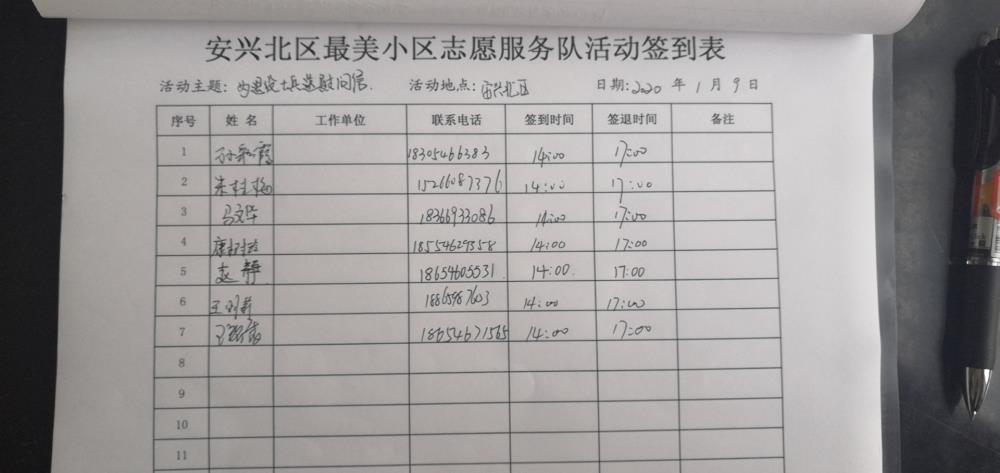 安兴北区最美小区志愿服务队活动签到表
活动主题：为退役士兵送慰问信 活动地点：安兴北区 日期：2020 年 1 月 9 日
序号 姓 名 工作单位 联系电话 签到时间 签退时间 备注
1 18305466383 14:00 17:00
2 朱桂梅 15266087376 14:00 17:00
3 马文华 18366933086 14:00 17:00
4 康 18554629358 14:00 17:00
5 赵静 18654605531 14:00 17:00
6 王 18865987603 14:00 17:00
7 18654671565 14:00 17:00
8
9
10
11